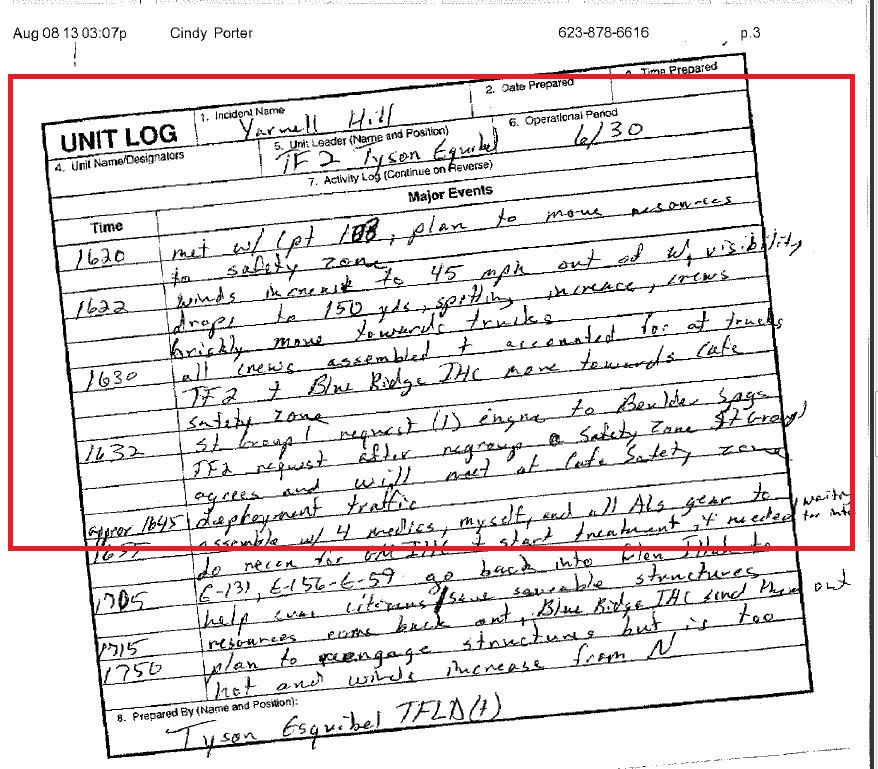 Aug 08 13 03:07p Cindy Porter 623-878-6616 p.3
UNIT LOG
1. Incident Name
Yarnell Hill
2. Date Prepared
3. Time Prepared
4. Unit Name/Designators
5. Unit Leader (Name and Position)
TF2 Tyson Equibel
6. Operational Period
6/30
7. Activity Log (Continue on Reverse)
Time Major Events
1620 met w/ Cpt , plan to move resources
to safety zone
1622 winds increase to 45 mph out of W, visibility
drops to 150 yds, spotting increase, crews
briskly move towards trucks
1630 all crews assembled + accounted for at trucks
TF2 + Blue Ridge IHC move towards Cafe
safety zone
1632 St Group 1 request (1) engine to Boulder Spgs
TF2 request after regroup @ Safety Zone St Group 1
agrees and will meet at Cafe Safety zone
approx 1645 deployment traffic
1657 assemble w/ 4 medics, myself, and all ALS gear to
do recon for GM IHC + start treatment if needed waiting for info
1705 E-131, E-156-E-59 go back into Glen Ilah to
help citizens/save saveable structures
1715 resources come back out, Blue Ridge IHC send them out
1750 plan to reengage structures but is too
hot and winds increase from N
8. Prepared By (Name and Position):
Tyson Esquibel TFLD(t)